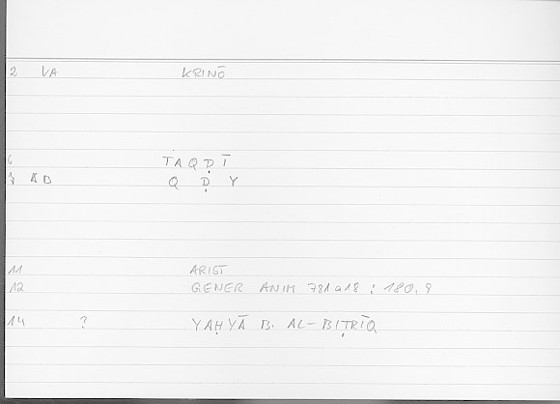 2 VA KRINŌ
6 TAQḌĪ
7 AB Q Ḍ Y
11 ARIST
12 GENER ANIM 781a18 : 180,9
14 ? YAḤYĀ B. AL-BIṬRĪQ